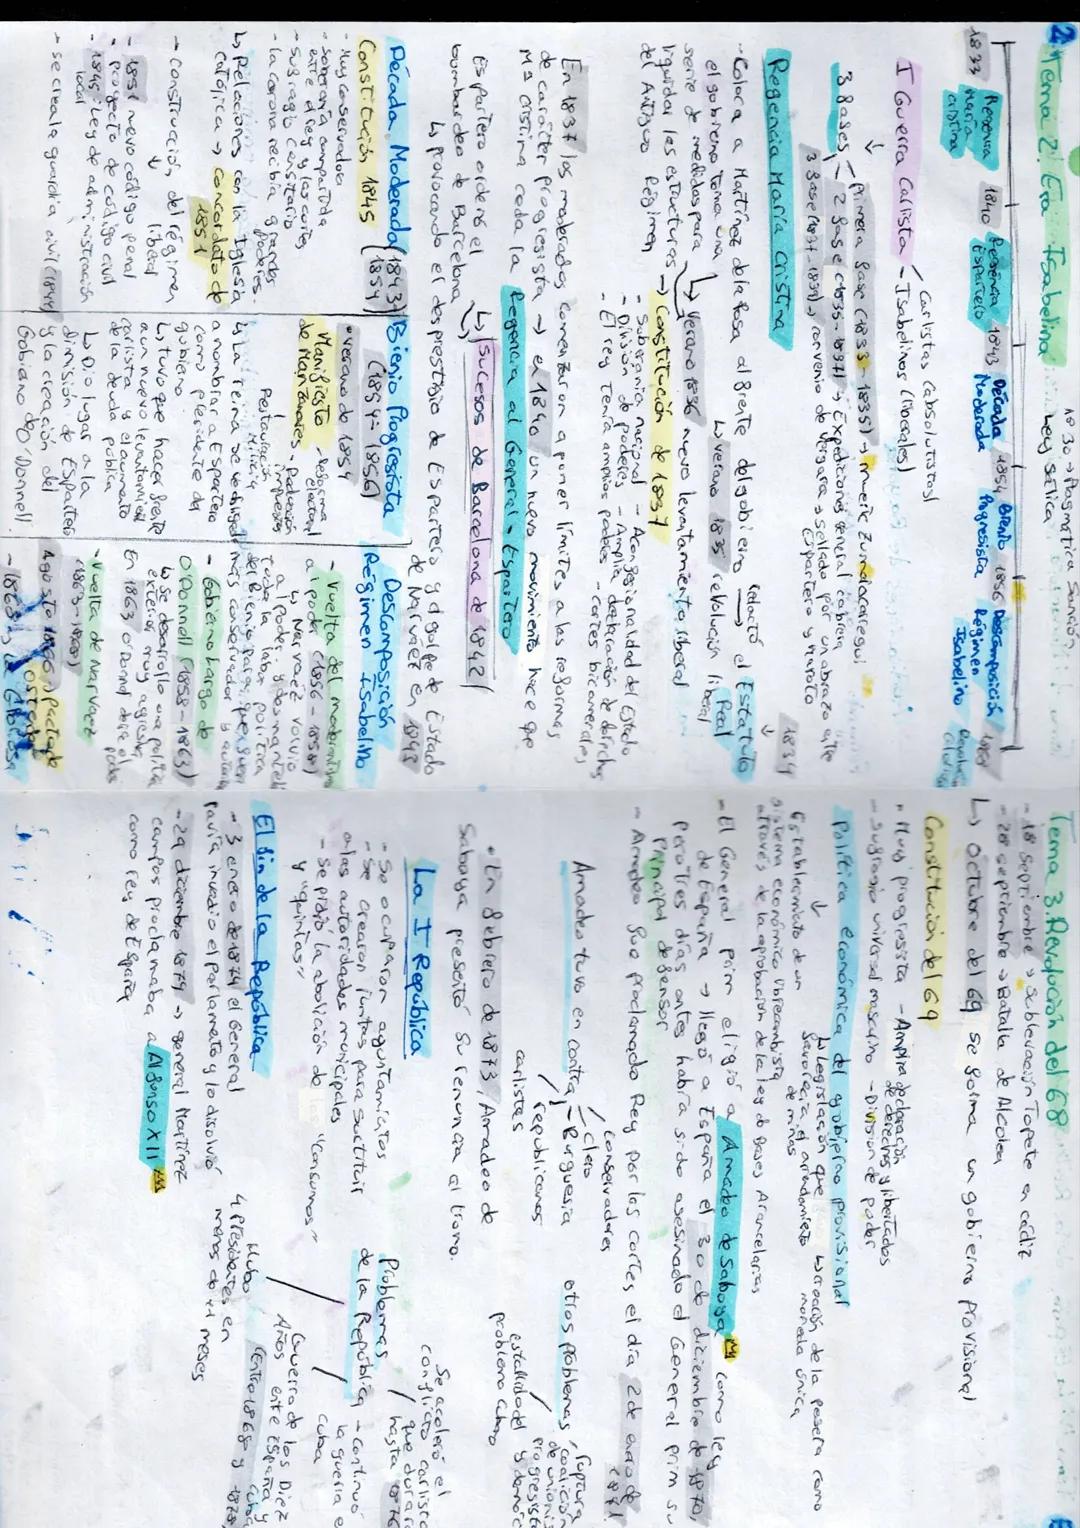 2. Tema 2: Era Isabelina
nº 30 → Pragmática Sanción
Ley Sálica
1833 Regencia María Cristina 1840 Regencia Espartero 1843 Década Moderada 1854 Bienio Progresista 1856 Descomposición Régimen Isabelino 1868
I Guerra Carlista
Carlistas (absolutistas)
- Isabelinos (liberales)
3 fases
1 primera fase (1833-1835) → muere Zumalacarregui
2 fase (1835-1837) → Expediciones general
3 fase (1837-1839) → convenio de Vergara → sellado por un abrazo entre Espartero y Maroto
Regencia María Cristina
- Coloca a Martínez de la Rosa al frente del gobierno redactó el Estatuto Real
1834
el gobierno toma una → verano 1835 revolución liberal
serie de medidas para → Verano 1836 nuevo levantamiento liberal
liquidar las estructuras → Constitución de 1837
del Antiguo Régimen
- Soberanía nacional - Aconfesionalidad del Estado
- División de poderes - Amplia declaración de derechos
- El rey tenía amplios poderes - cortes bicamerales
En 1837 los moderados comenzaron a poner límites a las reformas
de carácter progresista → el 1840 un nuevo movimiento hace que
Mª Cristina ceda la Regencia al General Espartero
Espartero ordenó el bombardeo de Barcelona → Sucesos de Barcelona de 1842
↳ provocando el desprestigio de Espartero y golpe de Estado
de Narvaez en 1843
Década Moderada (1843-1854)
Constitución 1845
- Muy conservadora
- soberanía compartida
entre el rey y las cortes
- sufragio censitario
- la corona recibía grandes
poderes.
↳ Relaciones con la Iglesia
Católica → Concordato de
1851
- construcción del régimen
liberal
- 1851 nuevo código penal
- proyecto de código civil
- 1845 ley de administración
local
- se crea la guardia civil (1844)
Bienio Progresista
(1854-1856)
• verano de 1854
Manifiesto
de Manzanares
- Reforma
electoral
- Reducción
impuestos
Restauración
Milicia
↳ La reina se ve obligada
a nombrar a Espartero
como presidente de
gobierno
↳ tuvo que hacer frente
a un nuevo levantamiento
carlista y el aumento
de la deuda pública
↳ Dio lugar a la
dimisión de Espartero
y la creación del
Gobierno de O'Donnell
Descomposición
Régimen Isabelino
- Vuelta del moderantismo
al poder (1856-1858)
↳ Narvaez volvió
al poder y desmanteló
toda la labor política
del Bienio
más conservador
- Gobierno Largo de
O'Donnell (1858-1863)
↳ se desarrolló una política
exterior muy agresiva
En 1863 O'Donnel deja el poder
- Vuelta de Narvaez
(1863-1868)
Agosto 1866 → pacto de
Ostende
- 1868 →
Tema 3. Revolución del 68
- 18 septiembre → Sublevación Topete en Cádiz
- 28 septiembre → Batalla de Alcolea
↳ Octubre del 69 se forma un gobierno provisional
Constitución del 69
- Muy progresista - Amplia declaración
de derechos y libertades
- Sufragio universal masculino - División de poder
Política económica del gobierno provisional
Establecimiento de un
sistema económico librecambista
através de la aprobación de la ley de Bases Arancelarias
↳ Legislación que
favorecía el arrendamiento
de minas
↳ creación de la peseta como
moneda única
- El General prim eligió a Amadeo de Saboya como rey
de España → llegó a España el 30 de diciembre de 1870,
pero tres días antes había sido asesinado el General prim su
principal defensor
- Amadeo fue proclamado Rey por los cortes el día 2 de enero de
1871
Amadeo tuvo en contra
conservadores
clero
- Burguesía
republicanos
carlistas
otros problemas
ruptura
coalición
de unionis
progresist
y demóc
estallido del
problema cubano
• En febrero de 1873, Amadeo de
Saboya presentó su renuncia al trono.
La I República
- Se ocuparon ayuntamientos
- Se crearon juntas para sustituir
a las autoridades municipales
- Se pidió la abolición de los "Consumos"
y "quintas"
Problemas
de la República
Se aceleró el
conflicto carlista
que durará
hasta 1876
- Continuó
la guerra e
Cuba
Guerra de los Diez
Años entre España y
Cuba
(entre 1868 y 1878)
Hubo
4 Presidentes en
menos de 11 meses
El fin de la República
- 3 enero de 1874 el General
Pavía invadió el parlamento y lo disolvió
- 29 diciembre 1874 → general Martínez
campos proclamaba a Alfonso XII
como rey de España